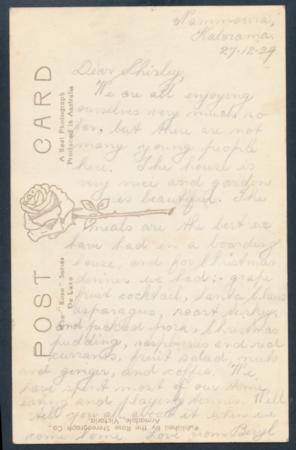 Kalorama.
27-12-29
Dear Shirley,
We are all enjoying
ourselves very much so
far, but there are not
many young people
here. The house is
very nice and garden
is beautiful. The
meals are the best we
have had in a boarding
house, and for Christmas
dinner we had:- grape
fruit cocktail, Santa Claus
asparagus, roast turkey,
and pickled pork, Christmas
pudding, raspberries and red
currants, fruit salad, nuts
and ginger, and coffee. We
have spent most of our time
eating and playing tennis. Will
tell you all about it when we
come home. Love from Beryl
POST CARD
A Real Photograph
Produced in Australia
The "Rose" Series
De Luxe
Published by the Rose Stereograph Co.
Armadale, Victoria.